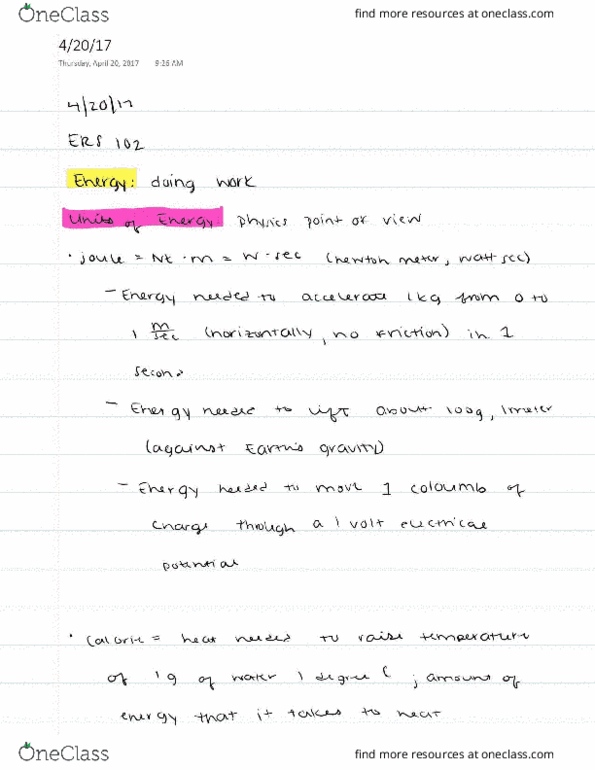 OneClass find more resources at oneclass.com
4/20/17
Thursday, April 20, 2017 9:26 AM
4/20/17
ERS 102
Energy: doing work
Units of Energy physics point of view
• joule = Nt · m = W · sec (newton meter, watt sec)
– Energy needed to accelerate 1kg from 0 to
1 m/sec (horizontally, no friction) in 1
second
– Energy needed to lift about 100g, 1 meter
(against Earth's gravity)
– Energy needed to move 1 coloumb of
charge through a 1 volt electrical
potential
• Calorie = heat needed to raise temperature
of 1g of water 1 degree C ; amount of
energy that it takes to heat
OneClass find more resources at oneclass.com